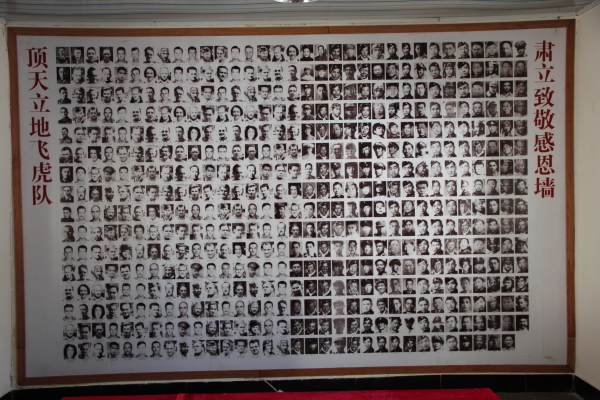 顶天立地飞虎队
肃立致敬感恩墙